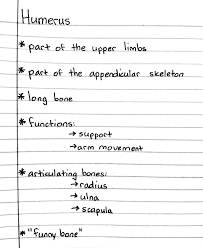 Humerus
* part of the upper limbs
* part of the appendicular skeleton
* long bone
* functions:
→ support
→ arm movement
* articulating bones:
→ radius
→ ulna
→ scapula
* "funny bone"